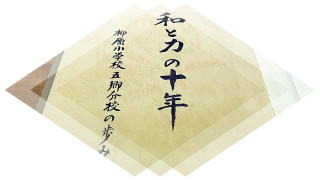 和と力の十年
柳原小学校五郷分校の歩み